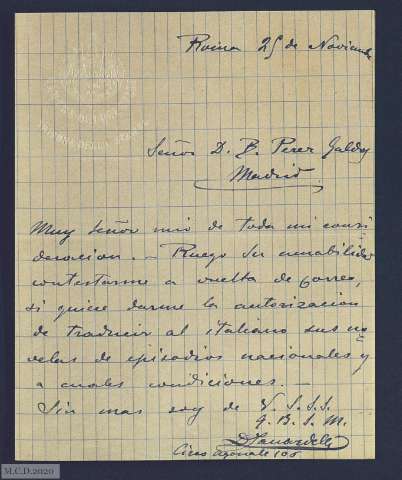 Roma 25 de Noviembre
Señor D. B. Perez Galdos
Madrid
Muy Señor mio de toda mi consi
deracion. – Ruego su amabilidad
contestarme a vuelta de correo,
si quiere darme la autorizacion
de traducir al italiano sus no
velas de episodios nacionales y
a cuales condiciones. –
Sin mas soy de V. S.S.S.
q. B. S. M.
Circo Agonale 105
M.C.D.2020